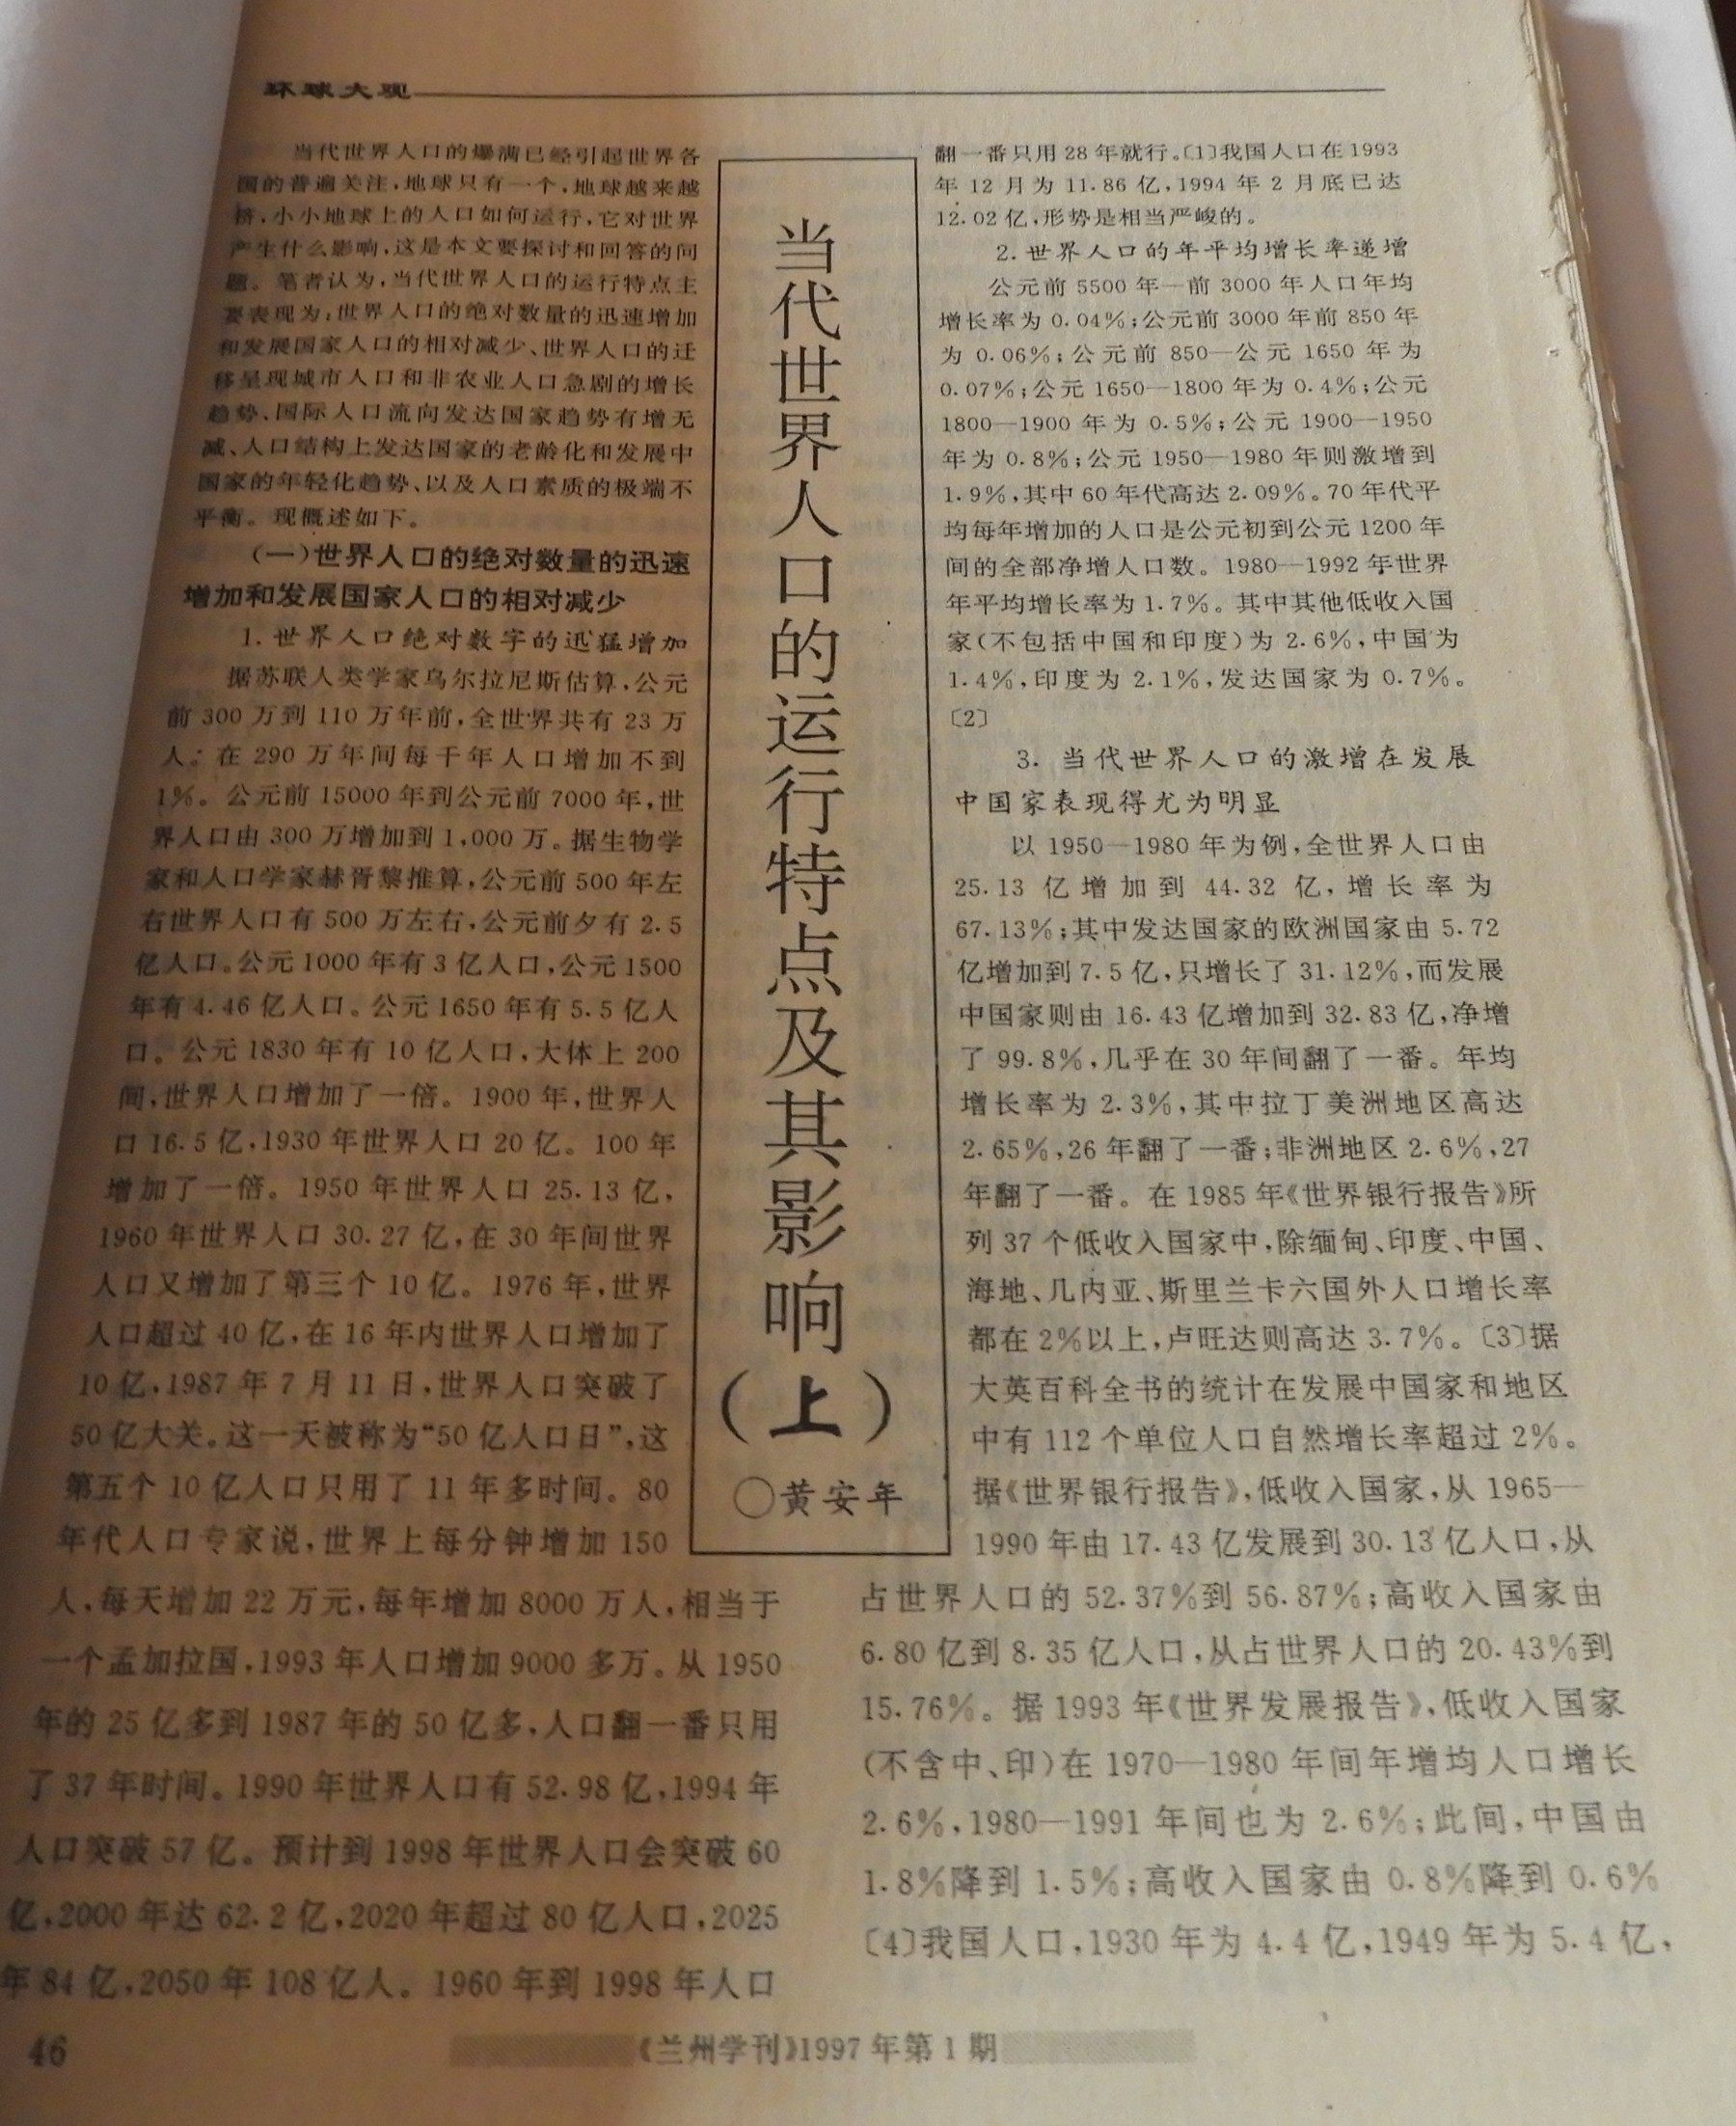 环球大观
当代世界人口的运行特点及其影响
(上)
○黄安年
当代世界人口的爆满已经引起世界各
国的普遍关注,地球只有一个,地球越来越
挤,小小地球上的人口如何运行,它对世界
产生什么影响,这是本文要探讨和回答的问
题。笔者认为,当代世界人口的运行特点主
要表现为:世界人口的绝对数量的迅速增加
和发展国家人口的相对减少、世界人口的迁
移呈现城市人口和非农业人口急剧的增长
趋势、国际人口流向发达国家趋势有增无
减、人口结构上发达国家的老龄化和发展中
国家的年轻化趋势、以及人口素质的极端不
平衡。现概述如下。
(一)世界人口的绝对数量的迅速
增加和发展国家人口的相对减少
1.世界人口绝对数字的迅猛增加
据苏联人类学家乌尔拉尼斯估算,公元
前300万到110万年前,全世界共有23万
人;在290万年间每千年人口增加不到
1%。公元前15000年到公元前7000年,世
界人口由300万增加到1,000万。据生物学
家和人口学家赫胥黎推算,公元前500年左
右世界人口有500万左右,公元前夕有2.5
亿人口。公元1000年有3亿人口,公元1500
年有4.46亿人口。公元1650年有5.5亿人
口。公元1830年有10亿人口,大体上200
间,世界人口增加了一倍。1900年,世界人
口16.5亿,1930年世界人口20亿。100年
增加了一倍。1950年世界人口25.13亿,
1960年世界人口30.27亿,在30年间世界
人口又增加了第三个10亿。1976年,世界
人口超过40亿,在16年内世界人口增加了
10亿,1987年7月11日,世界人口突破了
50亿大关。这一天被称为“50亿人口日”,这
第五个10亿人口只用了11年多时间。80
年代人口专家说,世界上每分钟增加150
人,每天增加22万元,每年增加8000万人,相当于
一个孟加拉国,1993年人口增加9000多万。从1950
年的25亿多到1987年的50亿多,人口翻一番只用
了37年时间。1990年世界人口有52.98亿,1994年
人口突破57亿。预计到1998年世界人口会突破60
亿,2000年达62.2亿,2020年超过80亿人口,2025
年84亿,2050年108亿人。1960年到1998年人口
翻一番只用28年就行。〔1〕我国人口在1993
年12月为11.86亿,1994年2月底已达
12.02亿,形势是相当严峻的。
2.世界人口的年平均增长率递增
公元前5500年—前3000年人口年均
增长率为0.04%;公元前3000年前850年
为0.06%;公元前850—公元1650年为
0.07%;公元1650—1800年为0.4%;公元
1800—1900年为0.5%;公元1900—1950
年为0.8%;公元1950—1980年则激增到
1.9%,其中60年代高达2.09%。70年代平
均每年增加的人口是公元初到公元1200年
间的全部净增人口数。1980—1992年世界
年平均增长率为1.7%。其中其他低收入国
家(不包括中国和印度)为2.6%,中国为
1.4%,印度为2.1%,发达国家为0.7%。
〔2〕
3.当代世界人口的激增在发展
中国家表现得尤为明显
以1950—1980年为例,全世界人口由
25.13亿增加到44.32亿,增长率为
67.13%;其中发达国家的欧洲国家由5.72
亿增加到7.5亿,只增长了31.12%,而发展
中国家则由16.43亿增加到32.83亿,净增
了99.8%,几乎在30年间翻了一番。年均
增长率为2.3%,其中拉丁美洲地区高达
2.65%,26年翻了一番;非洲地区2.6%,27
年翻了一番。在1985年《世界银行报告》所
列37个低收入国家中,除缅甸、印度、中国、
海地、几内亚、斯里兰卡六国外人口增长率
都在2%以上,卢旺达则高达3.7%。〔3〕据
大英百科全书的统计在发展中国家和地区
中有112个单位人口自然增长率超过2%。
据《世界银行报告》,低收入国家,从1965—
1990年由17.43亿发展到30.13亿人口,从
占世界人口的52.37%到56.87%;高收入国家由
6.80亿到8.35亿人口,从占世界人口的20.43%到
15.76%。据1993年《世界发展报告》,低收入国家
(不含中、印)在1970—1980年间年增均人口增长
2.6%,1980—1991年间也为2.6%;此间,中国由
1.8%降到1.5%;高收入国家由0.8%降到0.6%
〔4〕我国人口,1930年为4.4亿,1949年为5.4亿,
46
《兰州学刊》1997年第1期